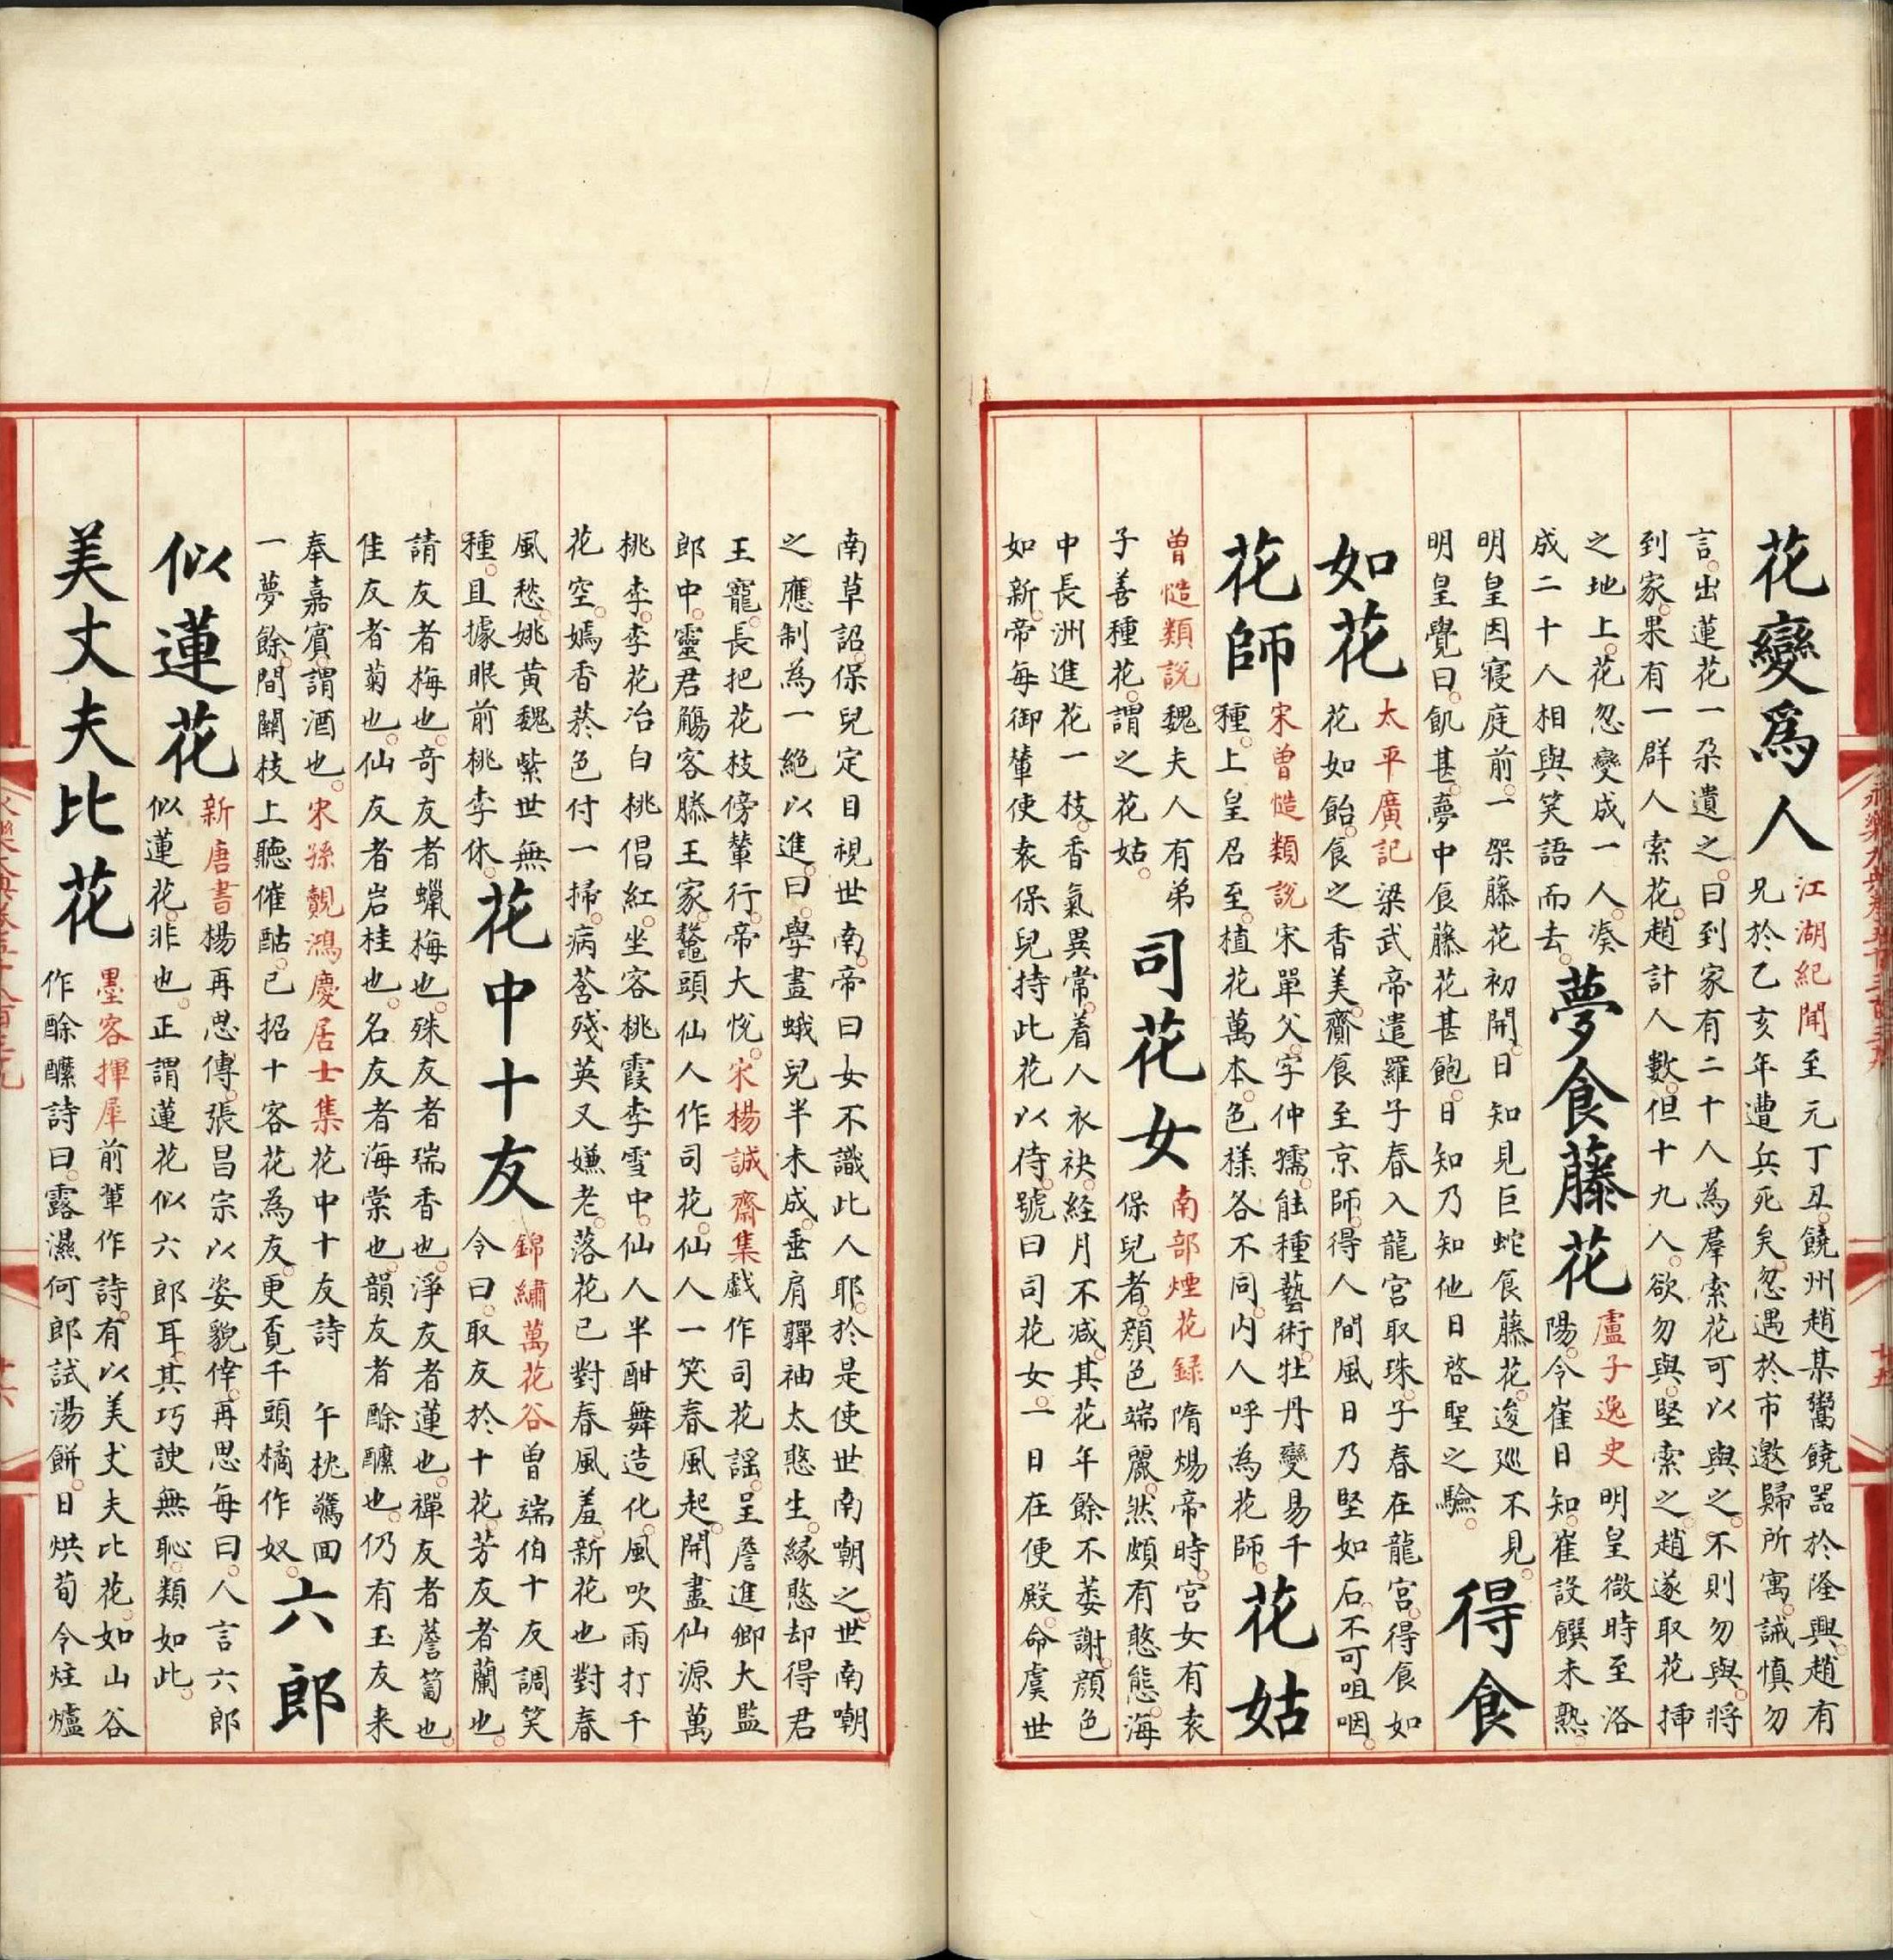 花變爲人
江湖紀聞至元丁丑饒州趙某鬻饒器於隆興趙有
兄於乙亥年遭兵死矣忽遇於市邀歸所寓誡慎勿
言出蓮花一朶遺之曰到家有二十人為羣索花可以與之不則勿與將
到家果有一群人索花趙計人數但十九人欲勿與堅索之趙遂取花揷
之地上花忽變成一人湊
成二十人相與笑語而去
夢食藤花
盧子逸史明皇微時至洛
陽令崔日知崔設饌未熟
明皇因寢庭前一架藤花初開日知見巨蛇食藤花逡巡不見
明皇覺曰飢甚夢中食藤花甚飽日知乃知他日啓聖之驗
得食
如花
太平廣記梁武帝遣羅子春入龍宮取珠子春在龍宮得食如
花如飴食之香美齎食至京師得人間風日乃堅如石不可咀咽
花師
宋曾慥類說宋單父字仲孺能種藝術牡丹變易千
種上皇召至植花萬本色樣各不同内人呼為花師
花姑
曾慥類說魏夫人有弟
子善種花謂之花姑
司花女
南部煙花録隋煬帝時宮女有袁
保兒者顔色端麗然頗有憨態海
中長洲進花一枝香氣異常着人衣袂経月不减其花年餘不萎謝顔色
如新帝每御輦使袁保兒持此花以侍號曰司花女一日在便殿命虞世
南草詔保兒定目視世南帝曰女不識此人耶於是使世南嘲之世南嘲
之應制為一絶以進曰學畫蛾兒半未成垂肩嚲袖太憨生縁憨却得君
王寵長把花枝傍輦行帝大悅宋楊誠齋集戲作司花謡呈詹進卿大監
郎中靈君觴客滕王家鼇頭仙人作司花仙人一笑春風起開盡仙源萬
桃李李花冶白桃倡紅坐客桃霞李雪中仙人半酣舞造化風吹雨打千
花空嫣香菸色付一掃病萫殘英又嫌老落花已對春風羞新花也對春
風愁姚黄魏紫世無
種且據眼前桃李休
花中十友
錦繡萬花谷曾端伯十友調笑
令曰取友於十花芳友者蘭也
請友者梅也竒友者蠟梅也殊友者瑞香也淨友者蓮也禪友者薝蔔也
佳友者菊也仙友者岩桂也名友者海棠也韻友者酴醾也仍有玉友来
奉嘉賓謂酒也宋孫覿鴻慶居士集花中十友詩 午枕驚回
一夢餘間闗枝上聽催酤已招十客花為友更覔千頭橘作奴
六郎
似蓮花
新唐書楊再思傳張昌宗以姿貌倖再思每曰人言六郎
似蓮花非也正謂蓮花似六郎耳其巧諛無恥類如此
美丈夫比花
墨客揮犀前輩作詩有以美丈夫比花如山谷
作酴醾詩曰露濕何郎試湯餅日烘荀令炷爐